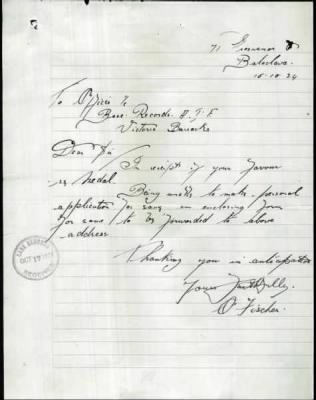 71 Grosvenor St
Balaclava.
16-10-24
To Officer i/c
Base Records A.I.F
Victoria Barracks
Dear Sir
In receipt of your favour
re Medal. Being unable to make personal
application for same am enclosing form
for same to be forwarded to above
address
Thanking you in anticipation
Yours faithfully
O Fischer.
BASE RECORDS
OCT 17 1924
RECEIVED